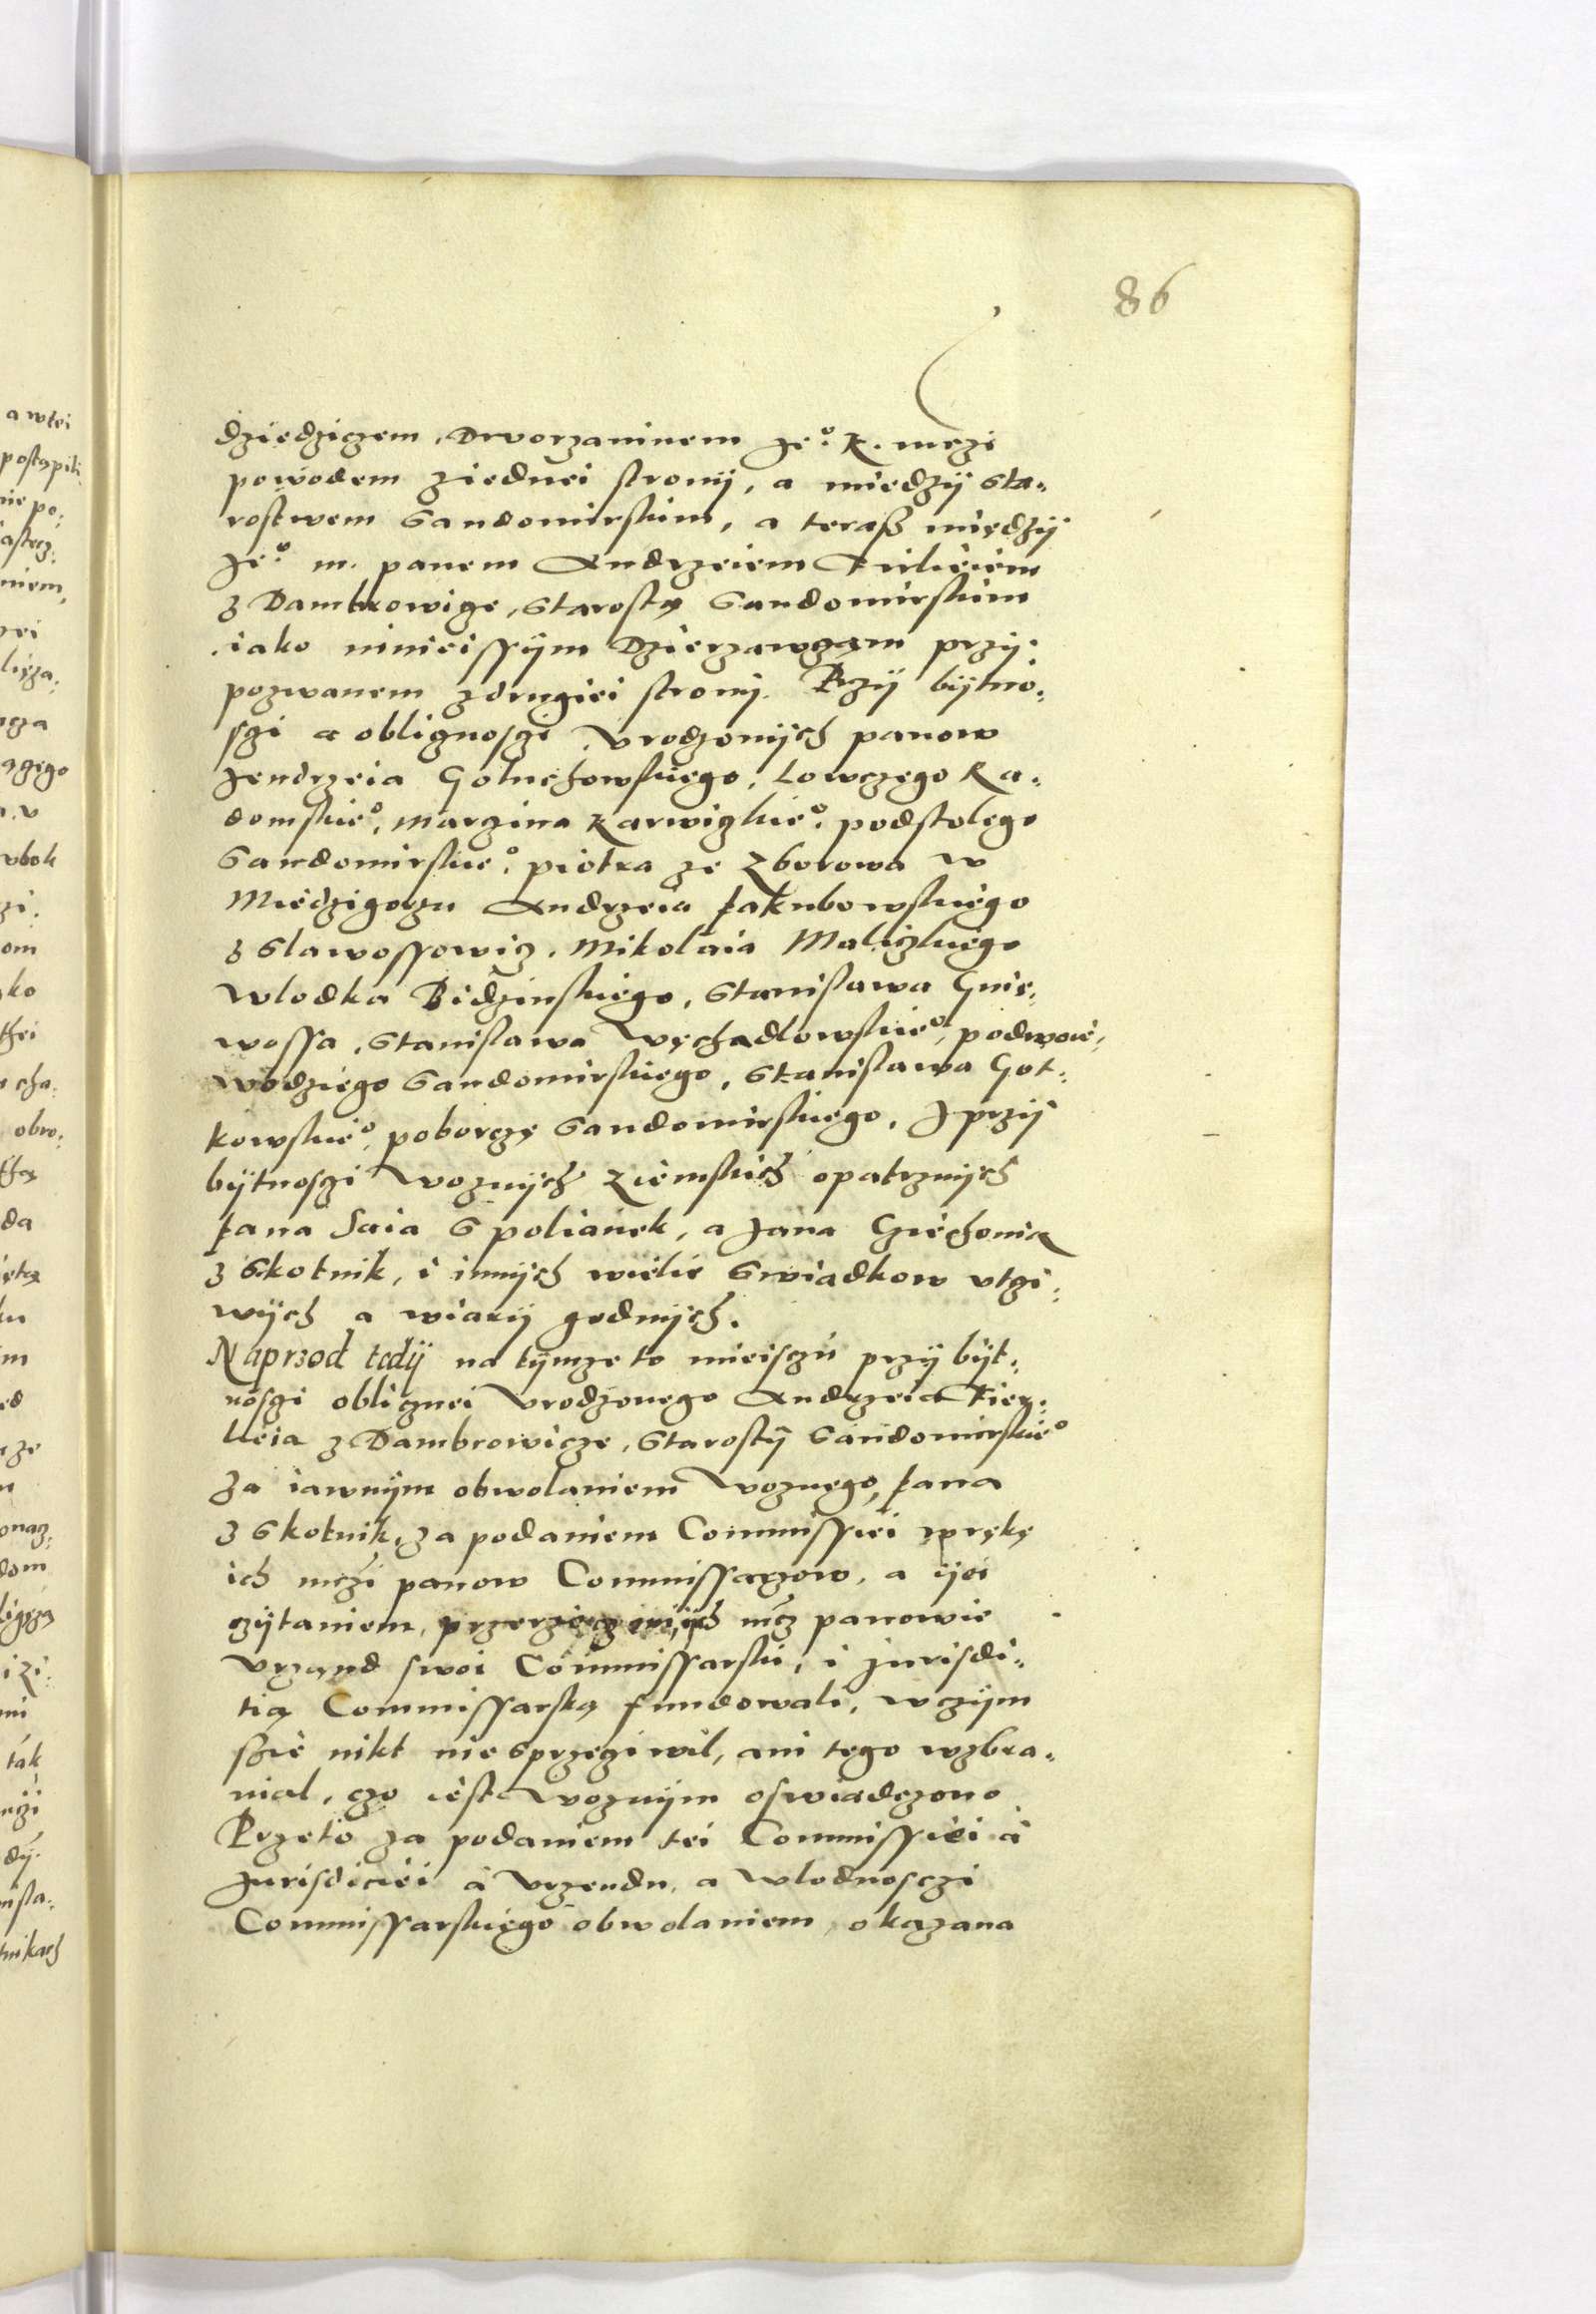 86
dziedziczem, Dworzaninem Je.º K. mczi
powodem ziednei stronÿ, a miedzÿ Sta=
rostwem Sandomirskim, a teraß międzÿ
Je.º m. panem Andrzeiem Firleiem
z Dambrowice, Starostą Sandomirskim
iako ninieissÿm Dzierzawcąm przÿ=
pozwanem zdrugiei stronÿ. Przÿ bÿtno=
sci a oblicnosci Vrodzonÿch panow
Jendrzeia Goluchowskiego, Lowczego Ra=
domskieº, Marcina Karwickieº, podstolego
Sandomirskieº, piotra ze Zborowa w
Miedzigorzu Andrzeia Jakubowskiego
z Slawossowic, Mikolaia Malickiego
Wlodka Bidzinskiego, Stanislawa Gnie=
wossa, Stanislawa Wychadlowskieº, podwoie=
wodziego Sandomirskiego, Stanislawa Got=
kowskieº, poborcze Sandomirskiego, J przÿ
bÿtnosci Woznÿch Ziemskich opatrznÿch
Jana Saia S polianek, a Jana Cziechonia
z Skotnik, i innÿch wielie Swiadkow vtzi=
wÿch a wiarÿ godnÿch.
Naprzod tedÿ na tÿmze to mieisczu przÿ bÿt=
nosci oblicznei Vrodzonego Andrzeia Fier=
lieia z Dambrowicze, Starostÿ Sandomirskieº
za iawnÿm obwolaniem Woznego Jana
z Skotnik, za podaniem Commissiei wrękę
ich mczi panow Commissarzow, a ÿei
czÿtaniem, przerzeczeni, ich mcz panowie
Vrzand swoi Commissarski, i Jurisdi=
tią Commissarską fundowali, wczÿm
szie nikt nie sprzeciwil, ani tego wzbra=
nial, czo iest Woznÿm oswiadczono
Przeto za podaniem tei Commissiei a
Jurisdiciei a Vrzendu, a wlodnosczi
Commissarskiego obwolaniem, okazana